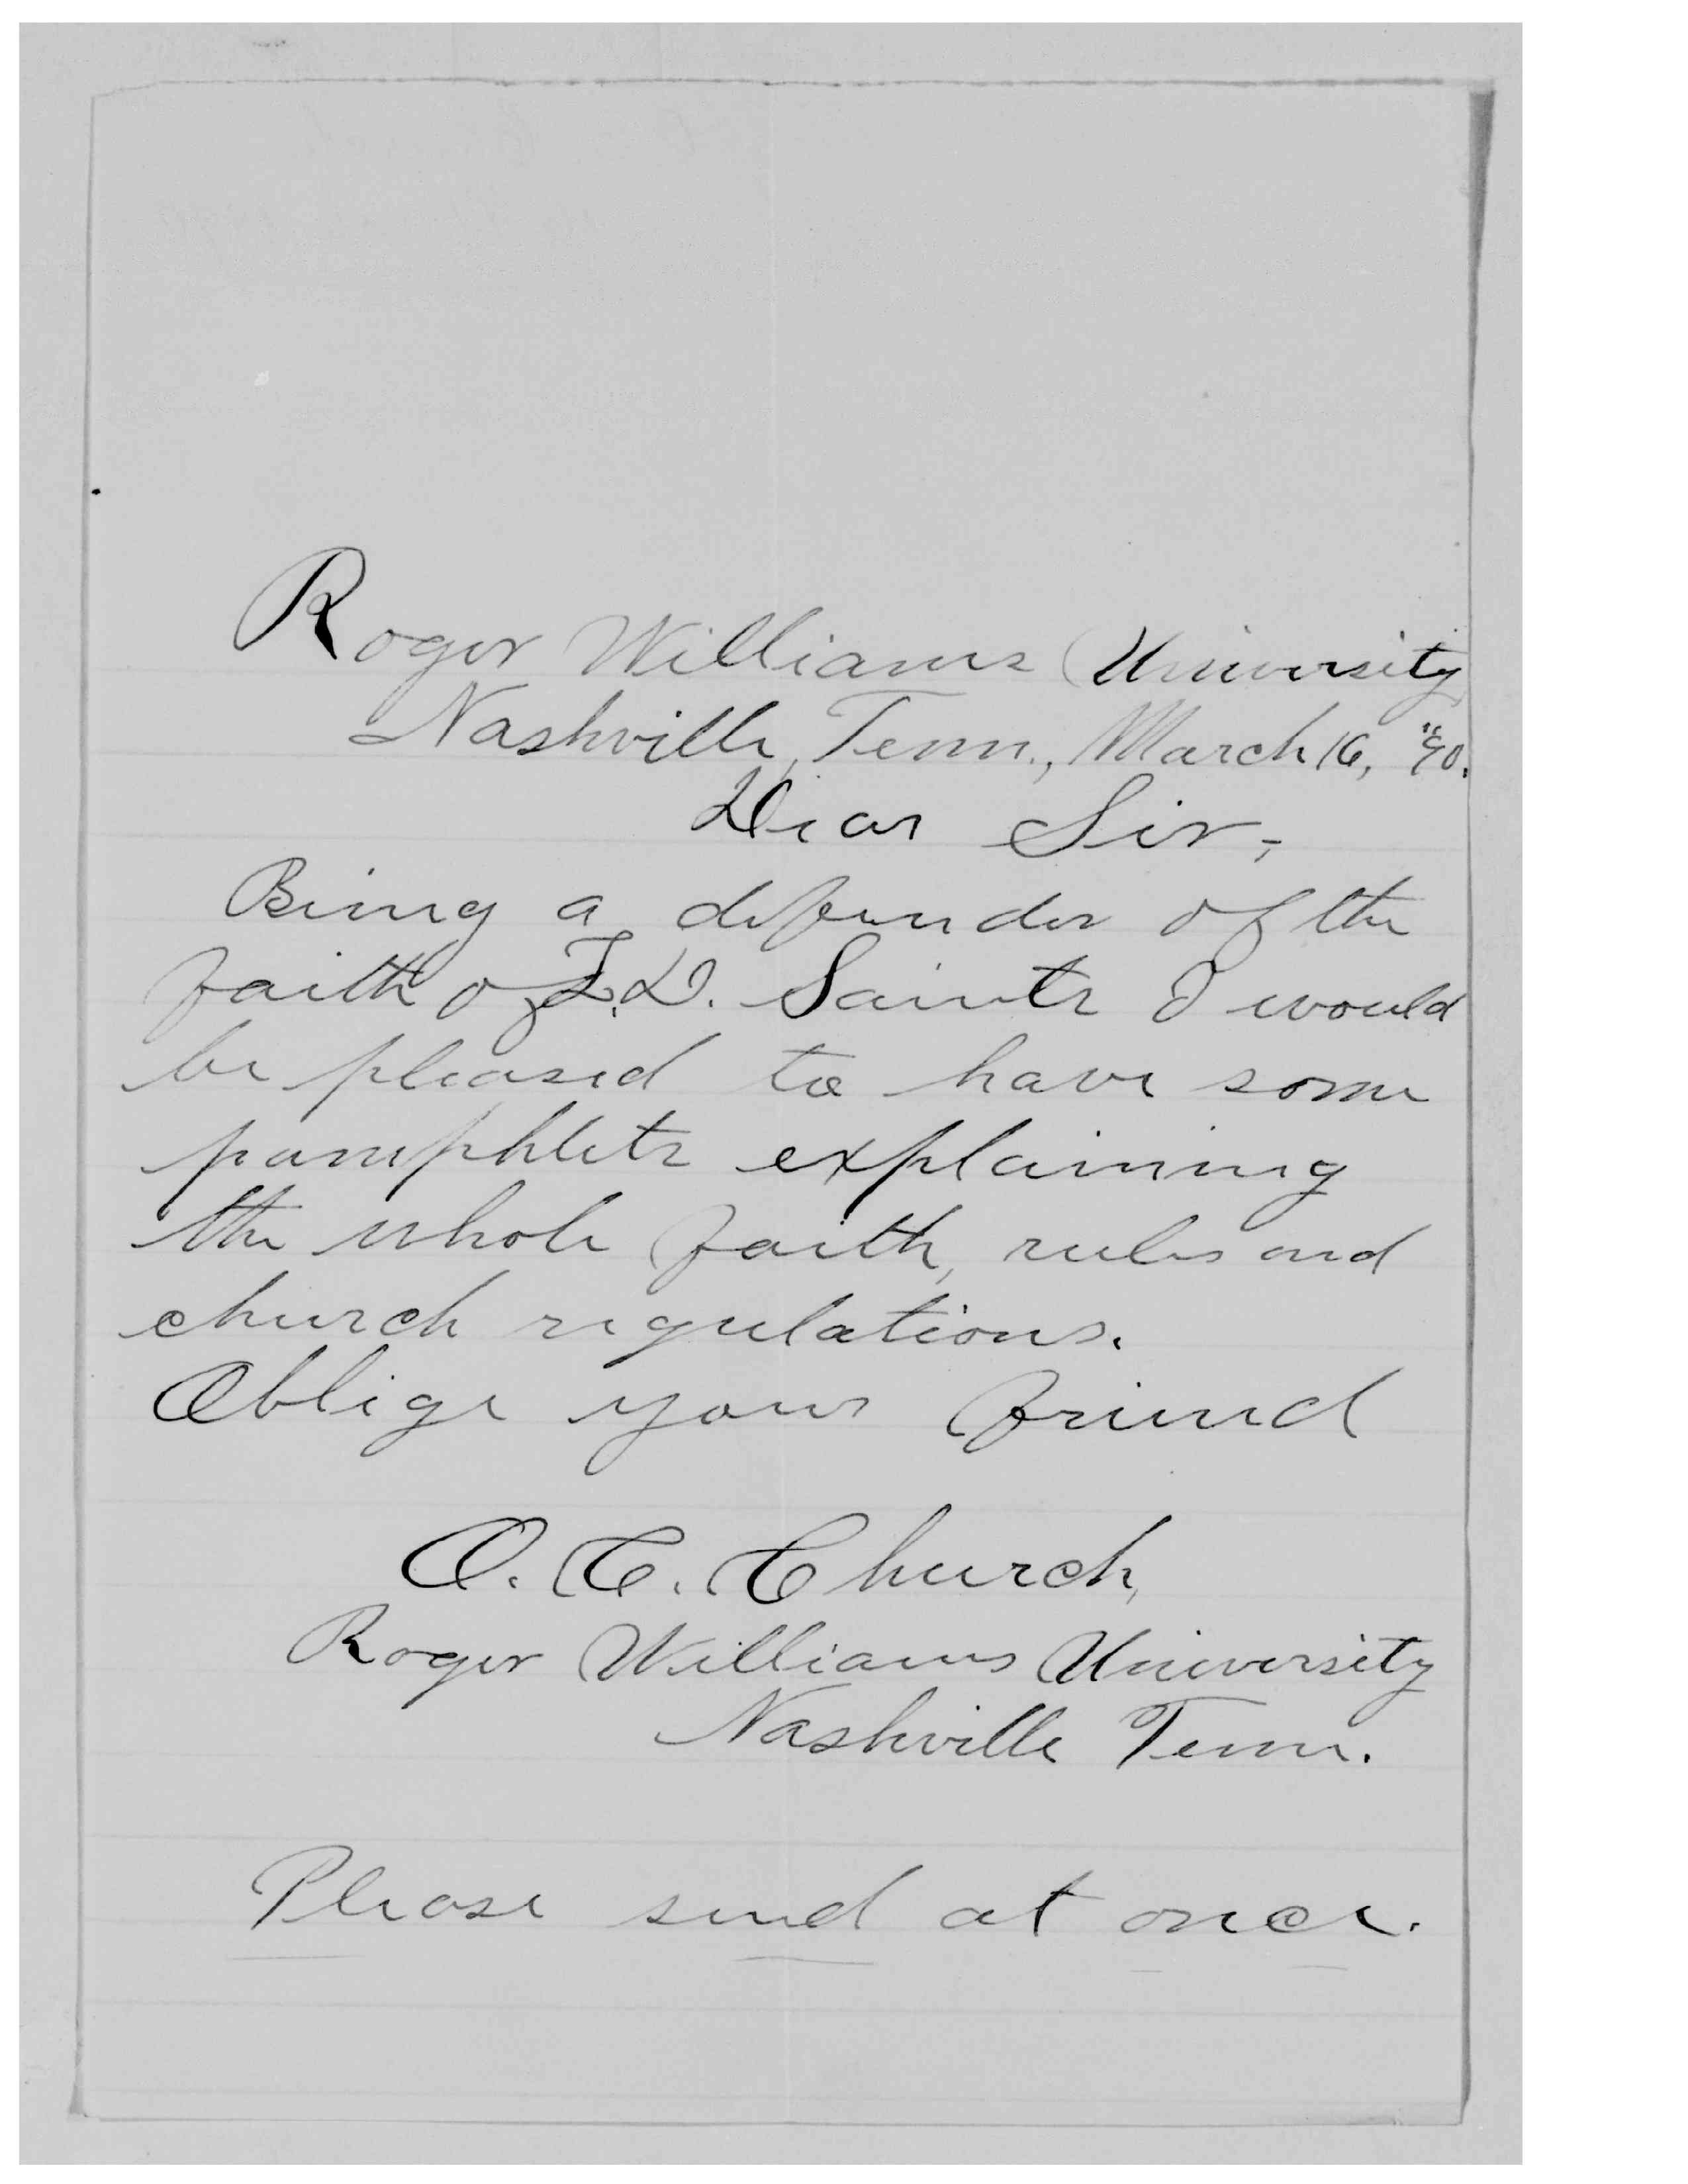 Roger Williams University
Nashville, Tenn., March 16, "90.
Dear Sir,
Being a defender of the
faith of L.D. Saints I would
be pleased to have some
pamphlets explaining
the whole faith, rules and
church regulations.
Oblige your friend
O. C. Church,
Roger Williams University
Nashville Tenn.
Please send at once.